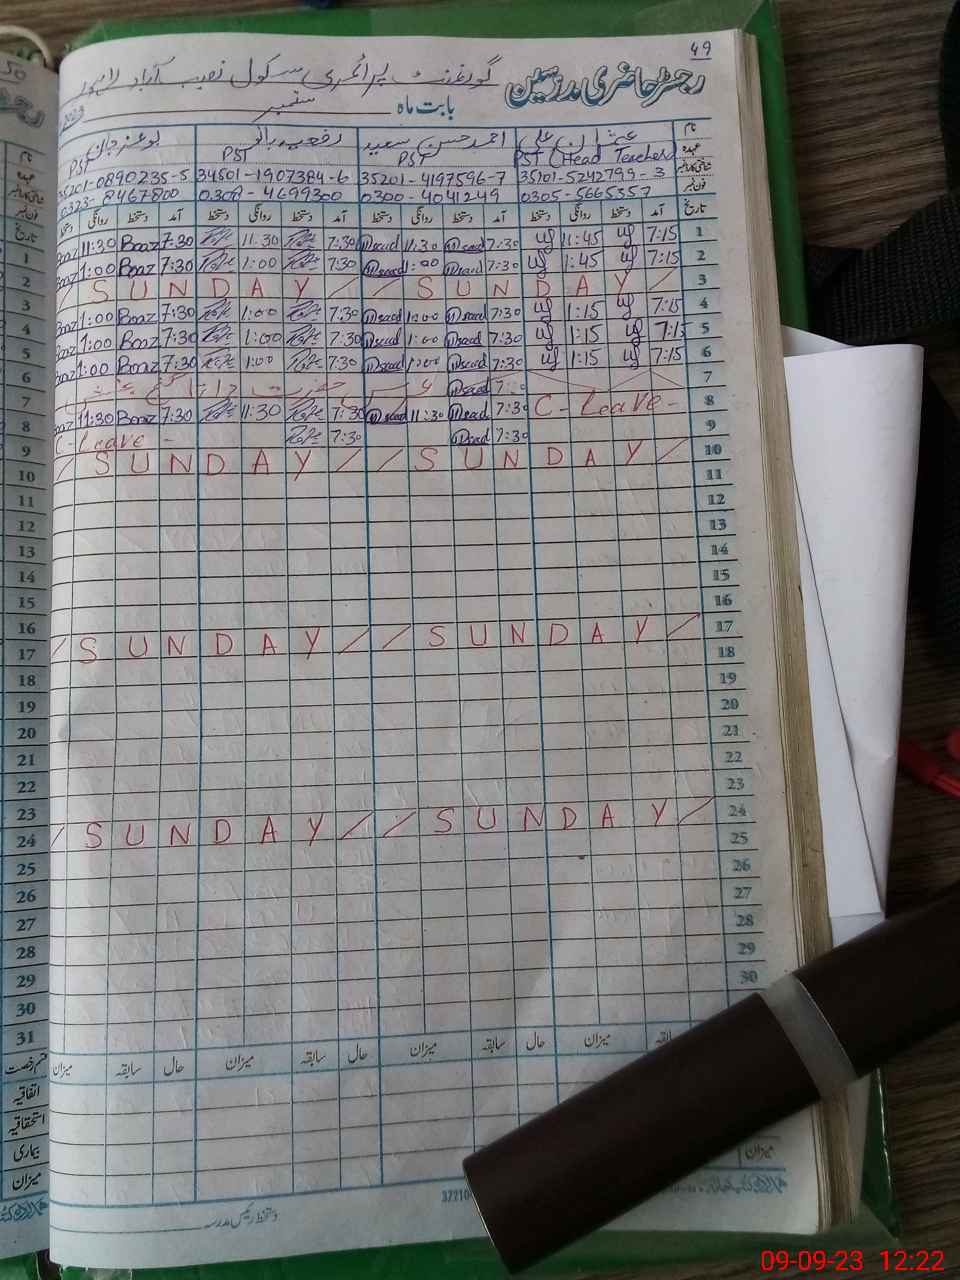 49
رجسٹر حاضری مدرسین گورنمنٹ پرائمری سکول نصیب آباد لاہور
بابت ماہ ستمبر 2023
نام عثمان علی احمد حسن سعید
عہدہ PST (Head Teacher) PST PST PST
35201-5242799-3 35201-4197596-7 34501-1907384-6 35201-0890235-5
فون نمبر 0305-5665357 0300-4041249 0308-4699300 0323-8467800
تاریخ آمد دستخط روانگی دستخط آمد دستخط روانگی دستخط آمد دستخط روانگی دستخط آمد دستخط روانگی تاریخ
1 7:15 11:45 7:30 11:30 7:30 11:30 7:30 Boaz 11:30 Boaz 1
2 7:15 1:45 7:30 1:00 7:30 1:00 7:30 Boaz 1:00 Boaz 2
3 / S U N D A Y / / S U N D A Y / 3
4 7:15 1:15 7:30 1:00 7:30 1:00 7:30 Boaz 1:00 Boaz 4
5 7:15 1:15 7:30 1:00 7:30 1:00 7:30 Boaz 1:00 Boaz 5
6 7:15 1:15 7:30 1:00 7:30 1:00 7:30 Boaz 1:00 Boaz 6
7 عرس حضرت داتا گنج بخش 7
8 C - Leave - 7:30 11:30 7:30 11:30 7:30 Boaz 11:30 Boaz 8
9 7:30 7:30 C - Leave - 9
10 / S U N D A Y / / S U N D A Y / 10
11 11
12 12
13 13
14 14
15 15
16 16
17 / S U N D A Y / / S U N D A Y / 17
18 18
19 19
20 20
21 21
22 22
23 23
24 / S U N D A Y / / S U N D A Y / 24
25 25
26 26
27 27
28 28
29 29
30 30
31
میزان سابقہ حال میزان سابقہ حال میزان سابقہ حال میزان قسم رخصت
اتفاقیہ
استحقاقیہ
بیماری
میزان میزان
37210
دستخط رئیس مدرسہ
09-09-23 12:22